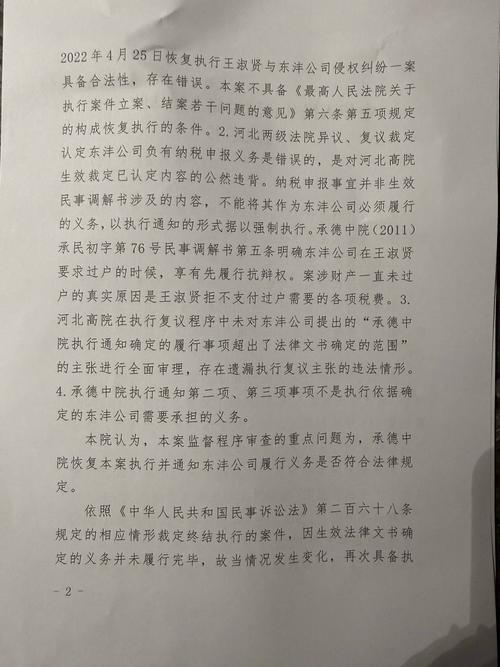 2022年4月25日恢复执行王淑贤与东沣公司侵权纠纷一案
具备合法性，存在错误。本案不具备《最高人民法院关于
执行案件立案、结案若干问题的意见》第六条第五项规定
的构成恢复执行的条件。2.河北两级法院异议、复议裁定
认定东沣公司负有纳税申报义务是错误的，是对河北高院
生效裁定已认定内容的公然违背。纳税申报事宜并非生效
民事调解书涉及的内容，不能将其作为东沣公司必须履行
的义务，以执行通知的形式据以强制执行。承德中院(2011)
承民初字第76号民事调解书第五条明确东沣公司在王淑贤
要求过户的时候，享有先履行抗辩权。案涉财产一直未过
户的真实原因是王淑贤拒不支付过户需要的各项税费。3.
河北高院在执行复议程序中未对东沣公司提出的“承德中
院执行通知确定的履行事项超出了法律文书确定的范围”
的主张进行全面审理，存在遗漏执行复议主张的违法情形。
4.承德中院执行通知第二项、第三项事项不是执行依据确
定的东沣公司需要承担的义务。
本院认为，本案监督程序审查的重点问题为，承德中
院恢复本案执行并通知东沣公司履行义务是否符合法律规
定。
依照《中华人民共和国民事诉讼法》第二百六十八条
规定的相应情形裁定终结执行的案件，因生效法律文书确
定的义务并未履行完毕，故当情况发生变化，再次具备执
- 2 -